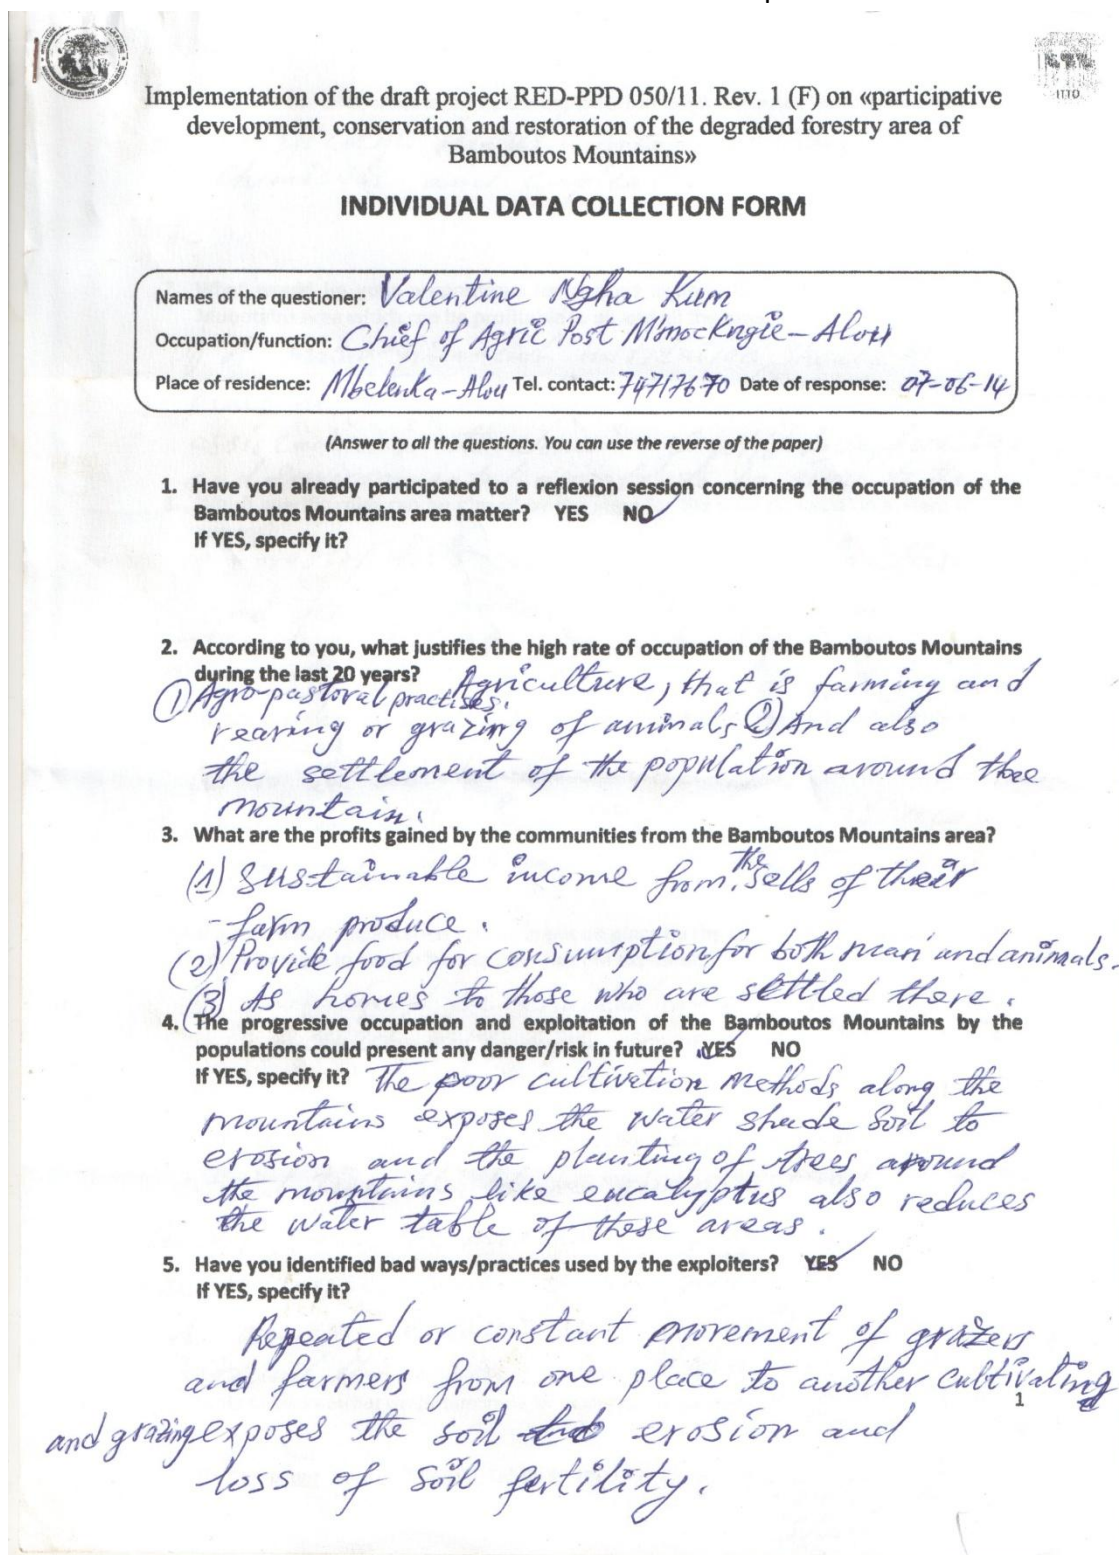 ITTO
Implementation of the draft project RED-PPD 050/11. Rev. 1 (F) on «participative
development, conservation and restoration of the degraded forestry area of
Bamboutos Mountains»
INDIVIDUAL DATA COLLECTION FORM
Names of the questioner: Valentine Ngha Kum
Occupation/function: Chief of Agric Post M'mockngie-Alou
Place of residence: Mbelenka-Alou Tel. contact: 74717670 Date of response: 07-06-14
(Answer to all the questions. You can use the reverse of the paper)
1. Have you already participated to a reflexion session concerning the occupation of the
Bamboutos Mountains area matter? YES NO
If YES, specify it?
2. According to you, what justifies the high rate of occupation of the Bamboutos Mountains
during the last 20 years? Agriculture, that is farming and
① Agro-pastoral practises.
rearing or grazing of animals ② And also
the settlement of the population around thee
mountain.
3. What are the profits gained by the communities from the Bamboutos Mountains area?
(1) Sustainable income from the sells of their
- farm produce.
(2) Provide food for consumption for both man and animals.
(3) As homes to those who are settled there.
4. The progressive occupation and exploitation of the Bamboutos Mountains by the
populations could present any danger/risk in future? YES NO
If YES, specify it? The poor cultivation methods along the
mountains exposes the water shade soil to
erosion and the planting of trees around
the mountains like eucalyptus also reduces
the water table of these areas.
5. Have you identified bad ways/practices used by the exploiters? YES NO
If YES, specify it?
Repeated or constant movement of grazers
and farmers from one place to another cultivating
1
and grazing exposes the soil to erosion and
loss of soil fertility.